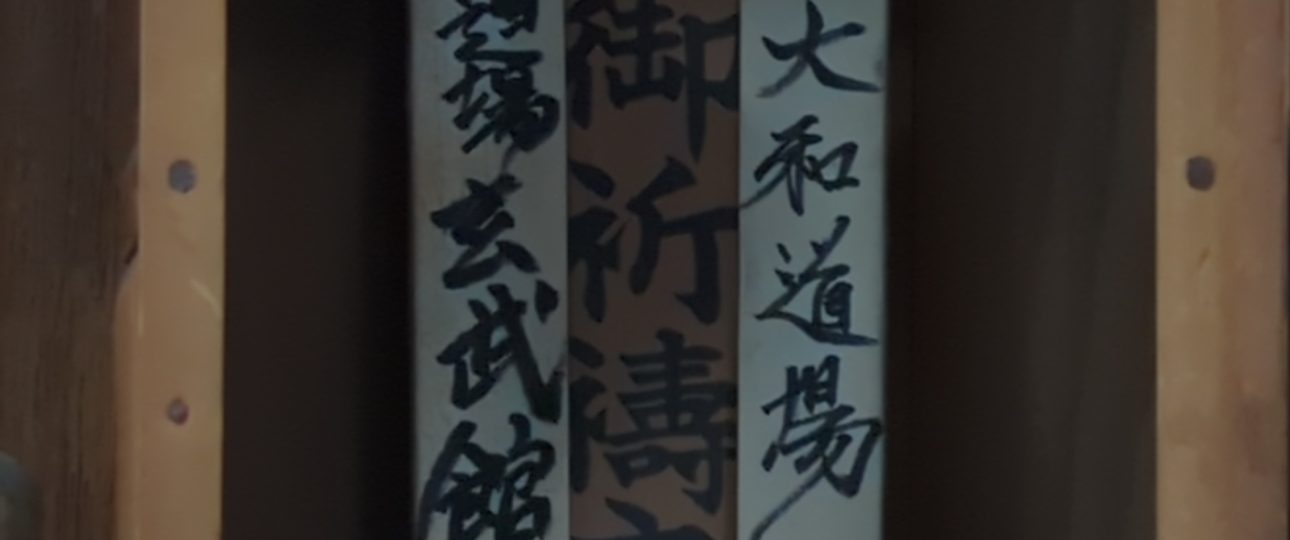 大和道場
御祈禱
場玄武館